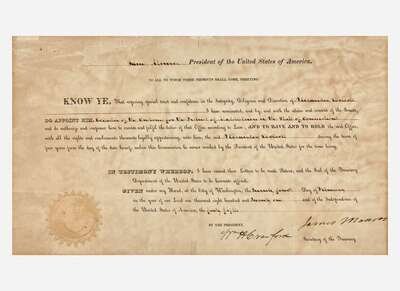 James Monroe President of the United States of America,
TO ALL TO WHOM THESE PRESENTS SHALL COME, GREETING:
KNOW YE, That reposing special trust and confidence in the Integrity, Diligence and Discretion of
I have nominated, and by and with the advice and consent of the Senate,
DO APPOINT HIM, Collector of the Customs for the District of in the State of Connecticut
and do authorize and empower him to execute and fulfil the duties of that Office according to Law; AND TO HAVE AND TO HOLD the said Office,
with all the rights and emoluments thereunto legally appertaining, unto him, the said during the term of
four years from the day of the date hereof, unless this Commission be sooner revoked by the President of the United States for the time being.
IN TESTIMONY WHEREOF, I have caused these Letters to be made Patent, and the Seal of the Treasury
Department of the United States to be hereunto affixed.
GIVEN under my Hand, at the City of Washington, the day of
in the year of our Lord one thousand eight hundred and and of the Independence of
the United States of America, the forty fifth.
James Monroe
BY THE PRESIDENT,
Wm H Crawford Secretary of the Treasury